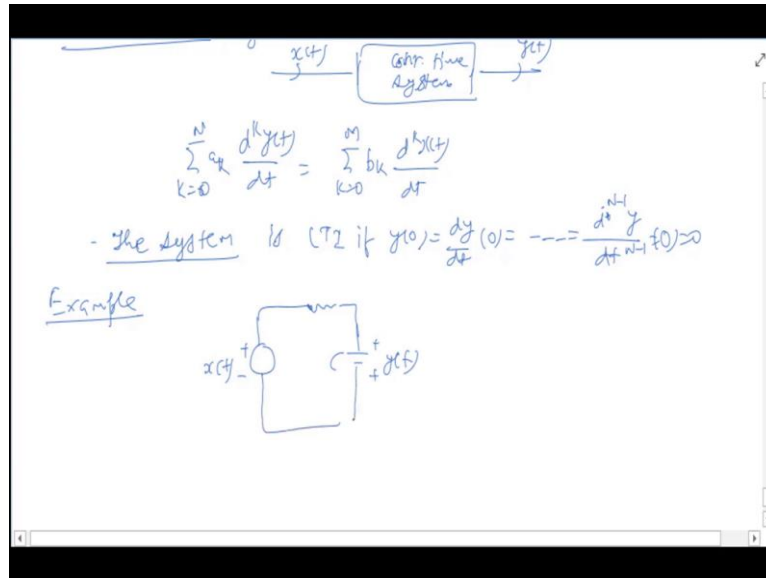 x(t) Cont. time y(t)
System
N ∑ K=0 a_k d^k y(t) / dt = M ∑ K=0 b_k d^k x(t) / dt
- The system is LTI if y(0) = dy/dt (0) = ---- = d^{N-1} y / dt^{N-1} (0) = 0
Example
x(t) + - C + + y(t)